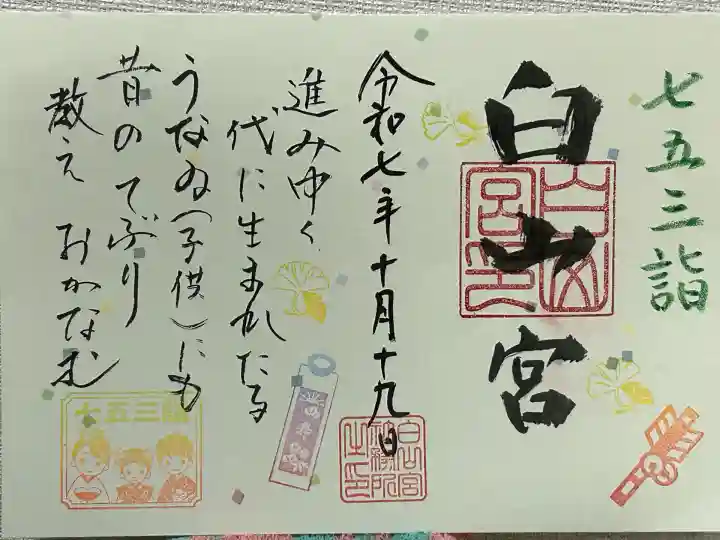 七五三詣
白山宮
令和七年十月十九日
進みゆく
代に生まれたる
うなゐ(子供)にも
昔のてぶり
教えおかなむ
白山宮印
白山宮
社務所
之印
七五三詣